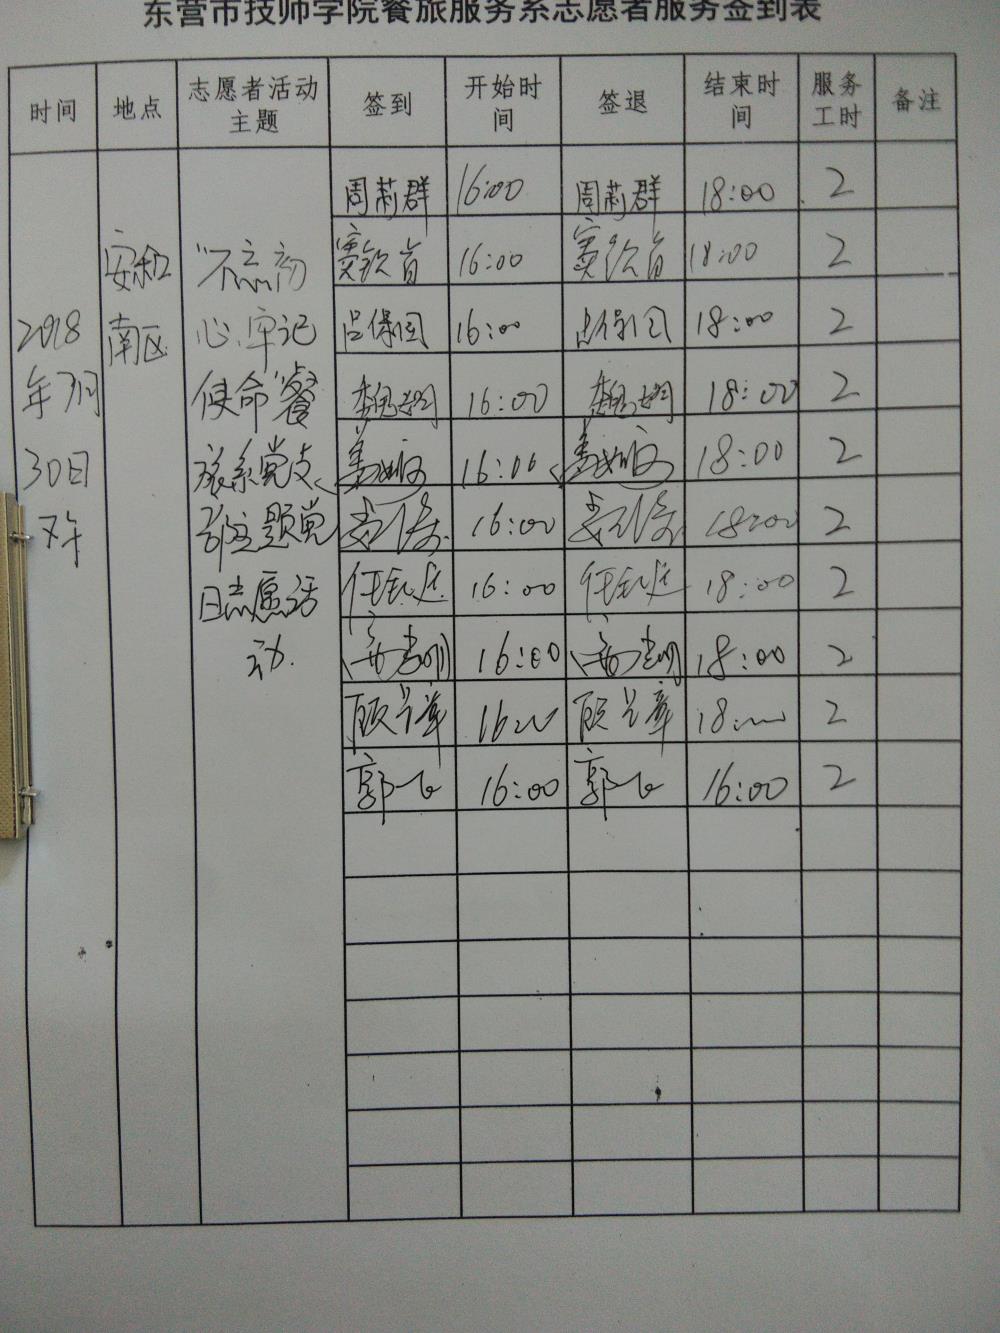 东营市技师学院餐旅服务系志愿者服务签到表
时间 地点 志愿者活动主题 签到 开始时间 签退 结束时间 服务工时 备注
2018
年3月
30日
下午
安和
南区
"不忘初
心、牢记
使命"餐
旅系党支
部主题党
日志愿活
动.
周莉群 16:00 周莉群 18:00 2
16:00 18:00 2
吕保国 16:00 吕保国 18:00 2
16:00 18:00 2
16:00 18:00 2
16:00 18:00 2
16:00 18:00 2
16:00 18:00 2
16:00 18:00 2
郭飞 16:00 郭飞 16:00 2